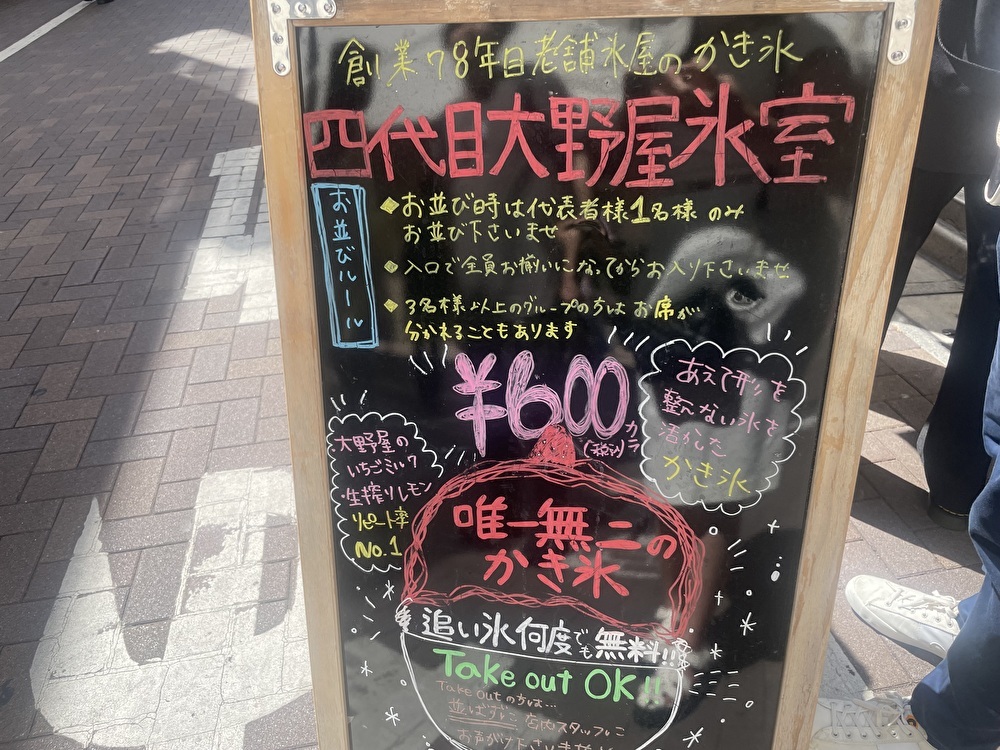 創業78年目老舗氷屋のかき氷
四代目大野屋氷室
お並びルール
◆お並び時は代表者様1名様のみ
お並び下さいませ
◆入口で全員お揃いになってからお入り下さいませ
◆3名様以上のグループの方はお席が
分かれることもあります
¥600
(税込)
カラ
あえて形を
整えない氷を
活かした
かき氷
・大野屋の
いちごミルク
・生搾りレモン
リピート率
No.1
唯一無二の
かき氷
追い氷何度でも無料!!!
Take out OK!!
Take outの方は…
並ばずに店内スタッフに
お声がけ下さいませ!